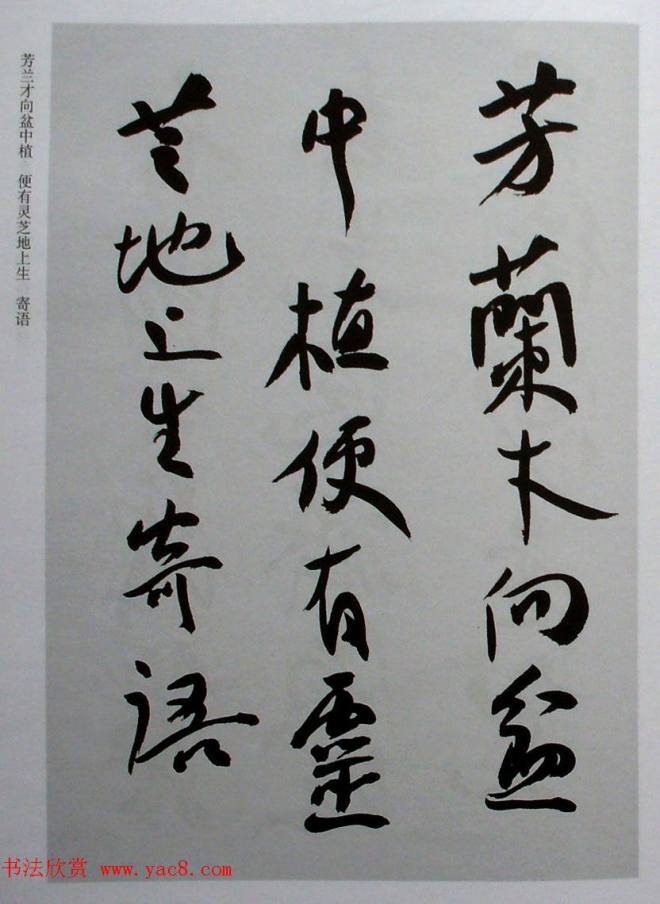 芳蘭才向盆
中植便有靈
芝地上生寄語
芳兰才向盆中植　便有灵芝地上生　寄语
书法欣赏 www.yac8.com